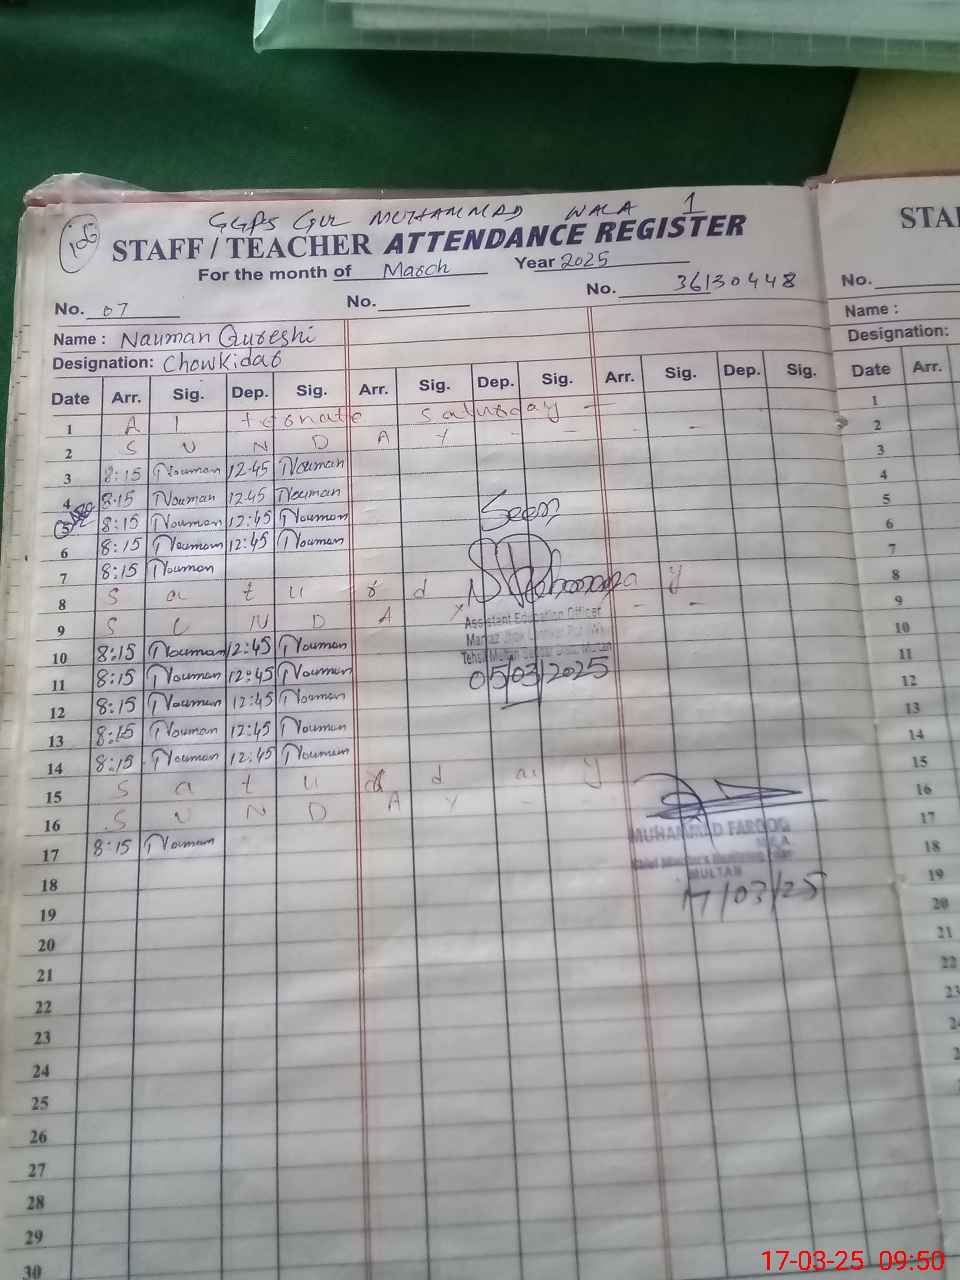 106
GGPS GUL MUHAMMAD WALA 1
STAFF / TEACHER ATTENDANCE REGISTER
For the month of March Year 2025
No. 07 No. No. 36130448
Name : Nauman Qureshi
Designation: Chowkidar
Date Arr. Sig. Dep. Sig. Arr. Sig. Dep. Sig. Arr. Sig. Dep. Sig.
1 A l ternate saturday -
2 S U N D A Y - - -
3 8:15 Nouman 12.45 Nouman
4 8.15 Nouman 12.45 Nouman
5 8:15 Nouman 12:45 Nouman
6 8:15 Nouman 12:45 Nouman
7 8:15 Nouman
8 S a t u r d a y
9 S U N D A Y - -
10 8:15 Nouman 12:45 Nouman
11 8:15 Nouman 12:45 Nouman
12 8:15 Nouman 12:45 Nouman
13 8:15 Nouman 12:45 Nouman
14 8:15 Nouman 12:45 Nouman
15 S a t u r d a y
16 S U N D A Y - -
17 8:15 Nouman
18
19
20
21
22
23
24
25
26
27
28
29
30
Seen
Assistant Education Officer
Markaz
Tehsil Multan Multan
05/03/2025
MUHAMMAD FAROOQ
M.E.A
MULTAN
17/03/25
STA
No.
Name :
Designation:
Date Arr.
1
2
3
4
5
6
7
8
9
10
11
12
13
14
15
16
17
18
19
20
21
22
23
17-03-25 09:50